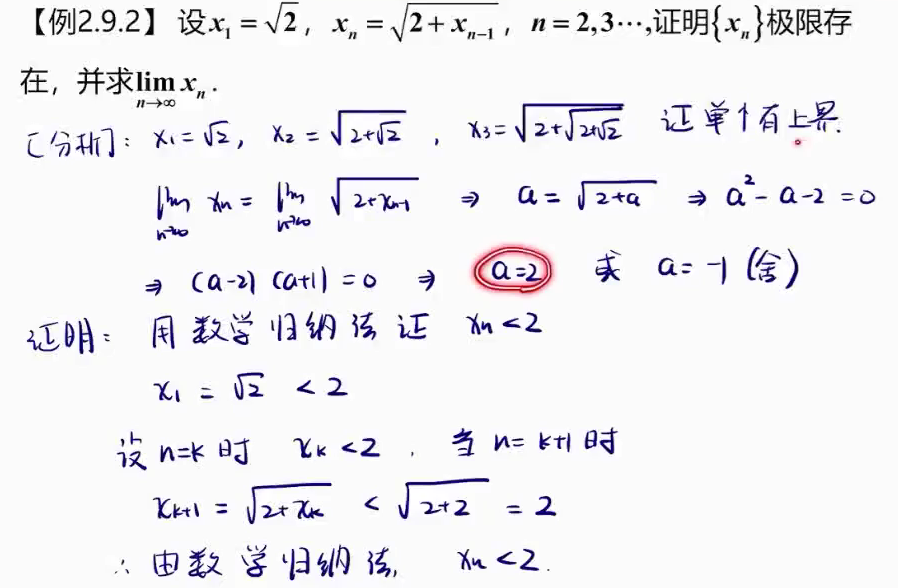 【例2.9.2】设x₁=√2, xₙ=√(2+xₙ₋₁), n=2,3⋯,证明{xₙ}极限存
在，并求lim_{n→∞} xₙ.
[分析]: x₁=√2, x₂=√(2+√2), x₃=√(2+√(2+√2)) 证单个有上界.
lim_{n→∞} xₙ = lim_{n→∞} √(2+xₙ₋₁) ⇒ a=√(2+a) ⇒ a²-a-2=0
⇒ (a-2)(a+1)=0 ⇒ a=2 或 a=-1 (舍)
证明: 用数学归纳法证 xₙ<2
x₁ = √2 < 2
设 n=k 时 xₖ<2, 当 n=k+1 时
xₖ₊₁ = √(2+xₖ) < √(2+2) = 2
∴ 由数学归纳法, xₙ<2.